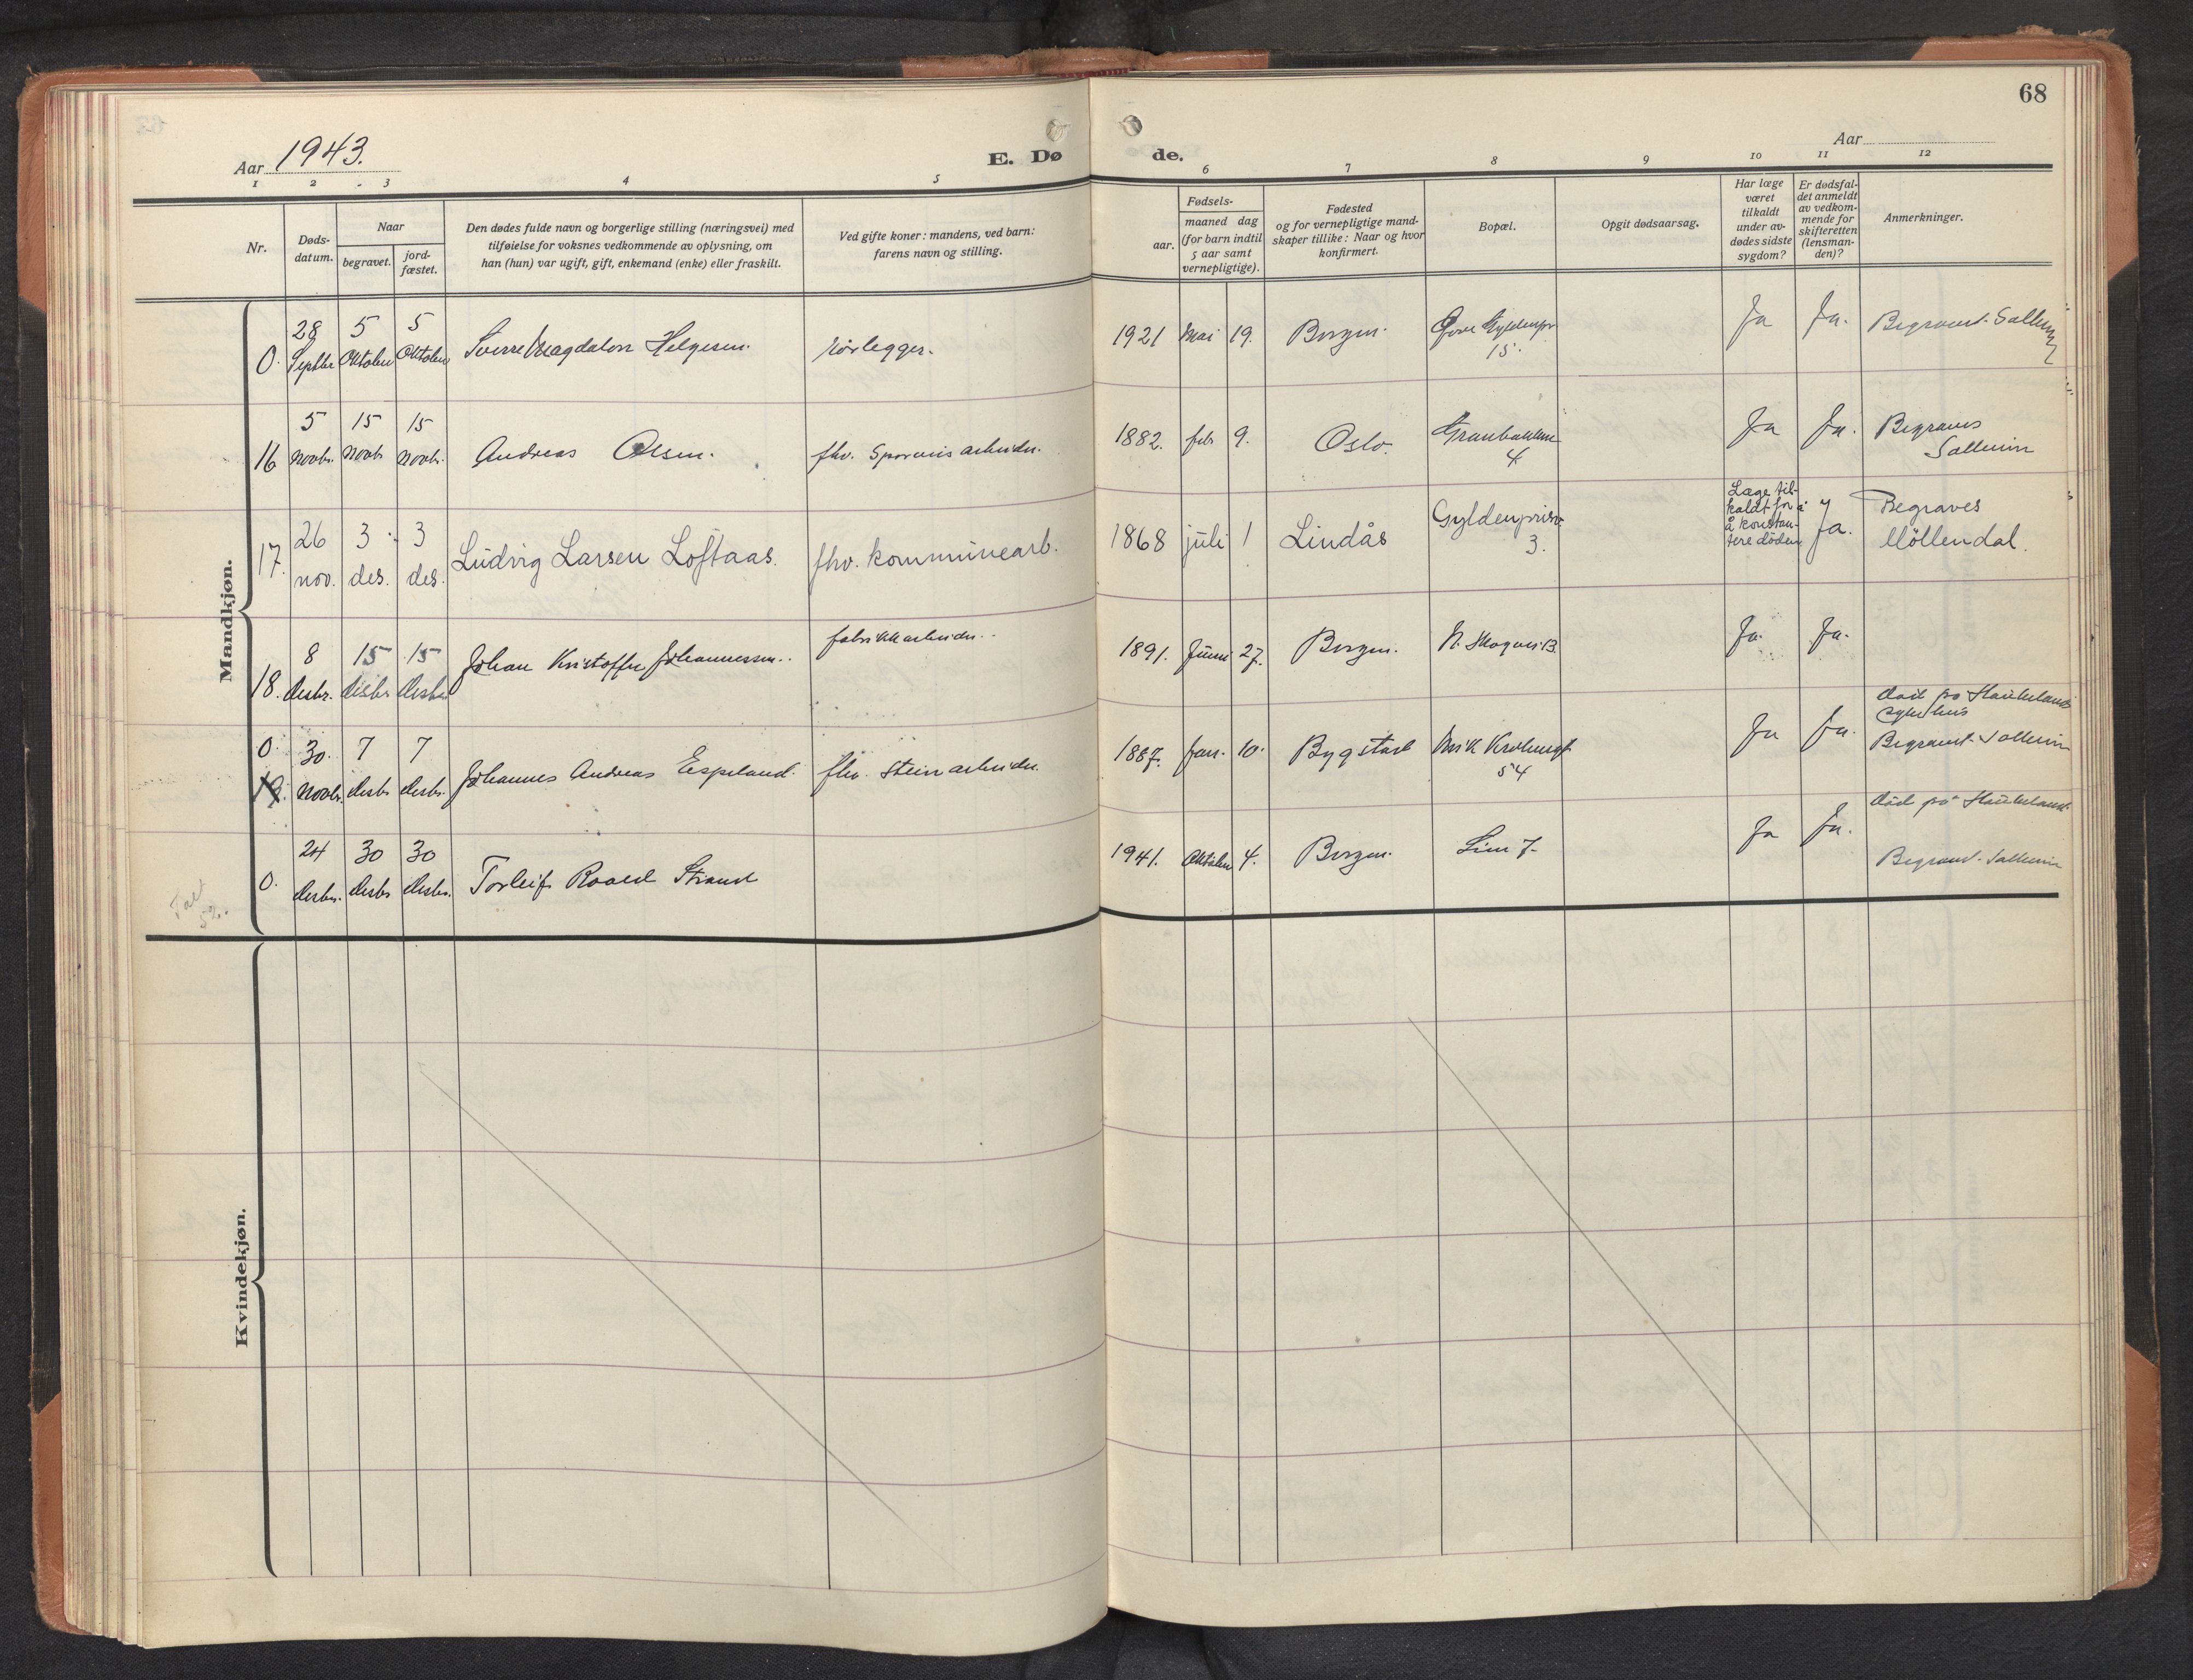 68
Aar 1943.
E. Dø
de.
Aar
1 2 3 4 5
6 7 8 9 10 11 12
Nr.
Døds-
datum.
Naar
begravet.
jord-
fæstet.
Den dødes fulde navn og borgerlige stilling (næringsvei) med
tilføielse for voksnes vedkommende av oplysning, om
han (hun) var ugift, gift, enkemand (enke) eller fraskilt.
Ved gifte koner: mandens, ved barn:
farens navn og stilling.
Fødsels-
aar.
maaned dag
(for barn indtil
5 aar samt
vernepligtige).
Fødested
og for vernepligtige mand-
skaper tillike: Naar og hvor
konfirmert.
Bopæl.
Opgit dødsaarsag.
Har læge
været
tilkaldt
under av-
dødes sidste
sygdom?
Er dødsfal-
det anmeldt
av vedkom-
mende for
skifteretten
(lensman-
den)?
Anmerkninger.
Mandkjøn.
0. 28 Septbr 5 Oktober 5 Oktober Sverre Magdalon Helgesen. rørlegger.
1921 Mai 19. Bergen. 15. Ja Ja.
16 5 novbr. 15 novb 15 novbr. Andreas Olsen. fhv. Sporveisarbeider.
1882. feb 9. Oslo. 4 Ja Ja. Begraves
17. 26 nov. 3 des. 3 des. Ludvig Larsen Loftaas. fhv. kommunearb.
1868 juli 1 Lindås Gyldenpris 3.
Læge til-
kaldt for å
å konstan-
tere døden
Ja.
Begraves
Möllendal.
18. 8 desbr. 15 desbr 15 desbr Johan Kristoffer Johannessen.. fabrikkarbeider..
1891. Juni 27. Bergen. Ja. Ja.
0. 19. 30. novbr. 7 desbr 7 desbr. Johannes Andreas Espeland. fhv. Steinarbeider.
1887. Jan. 10. Bygstad 54 Ja Ja.
død på Haukeland
sykehus
0. 24 desbr. 30 desbr 30 desbr. Torleif Roald Strand
1941. Oktober 4. Bergen. Ja Ja.
død på Haukeland.
52.
Kvindekjøn.